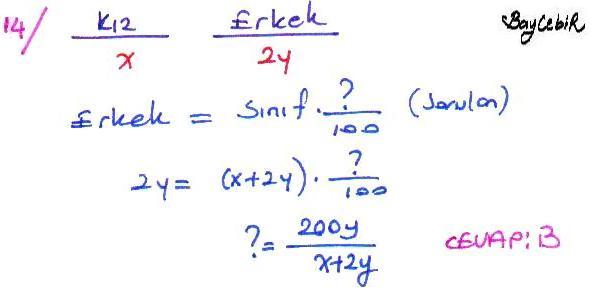 14/ Kız Erkek BayCebiR
x 2y
Erkek = Sınıf . ?/100 (Sorulan)
2y = (x+2y) . ?/100
? = 200y/x+2y CEVAP: B